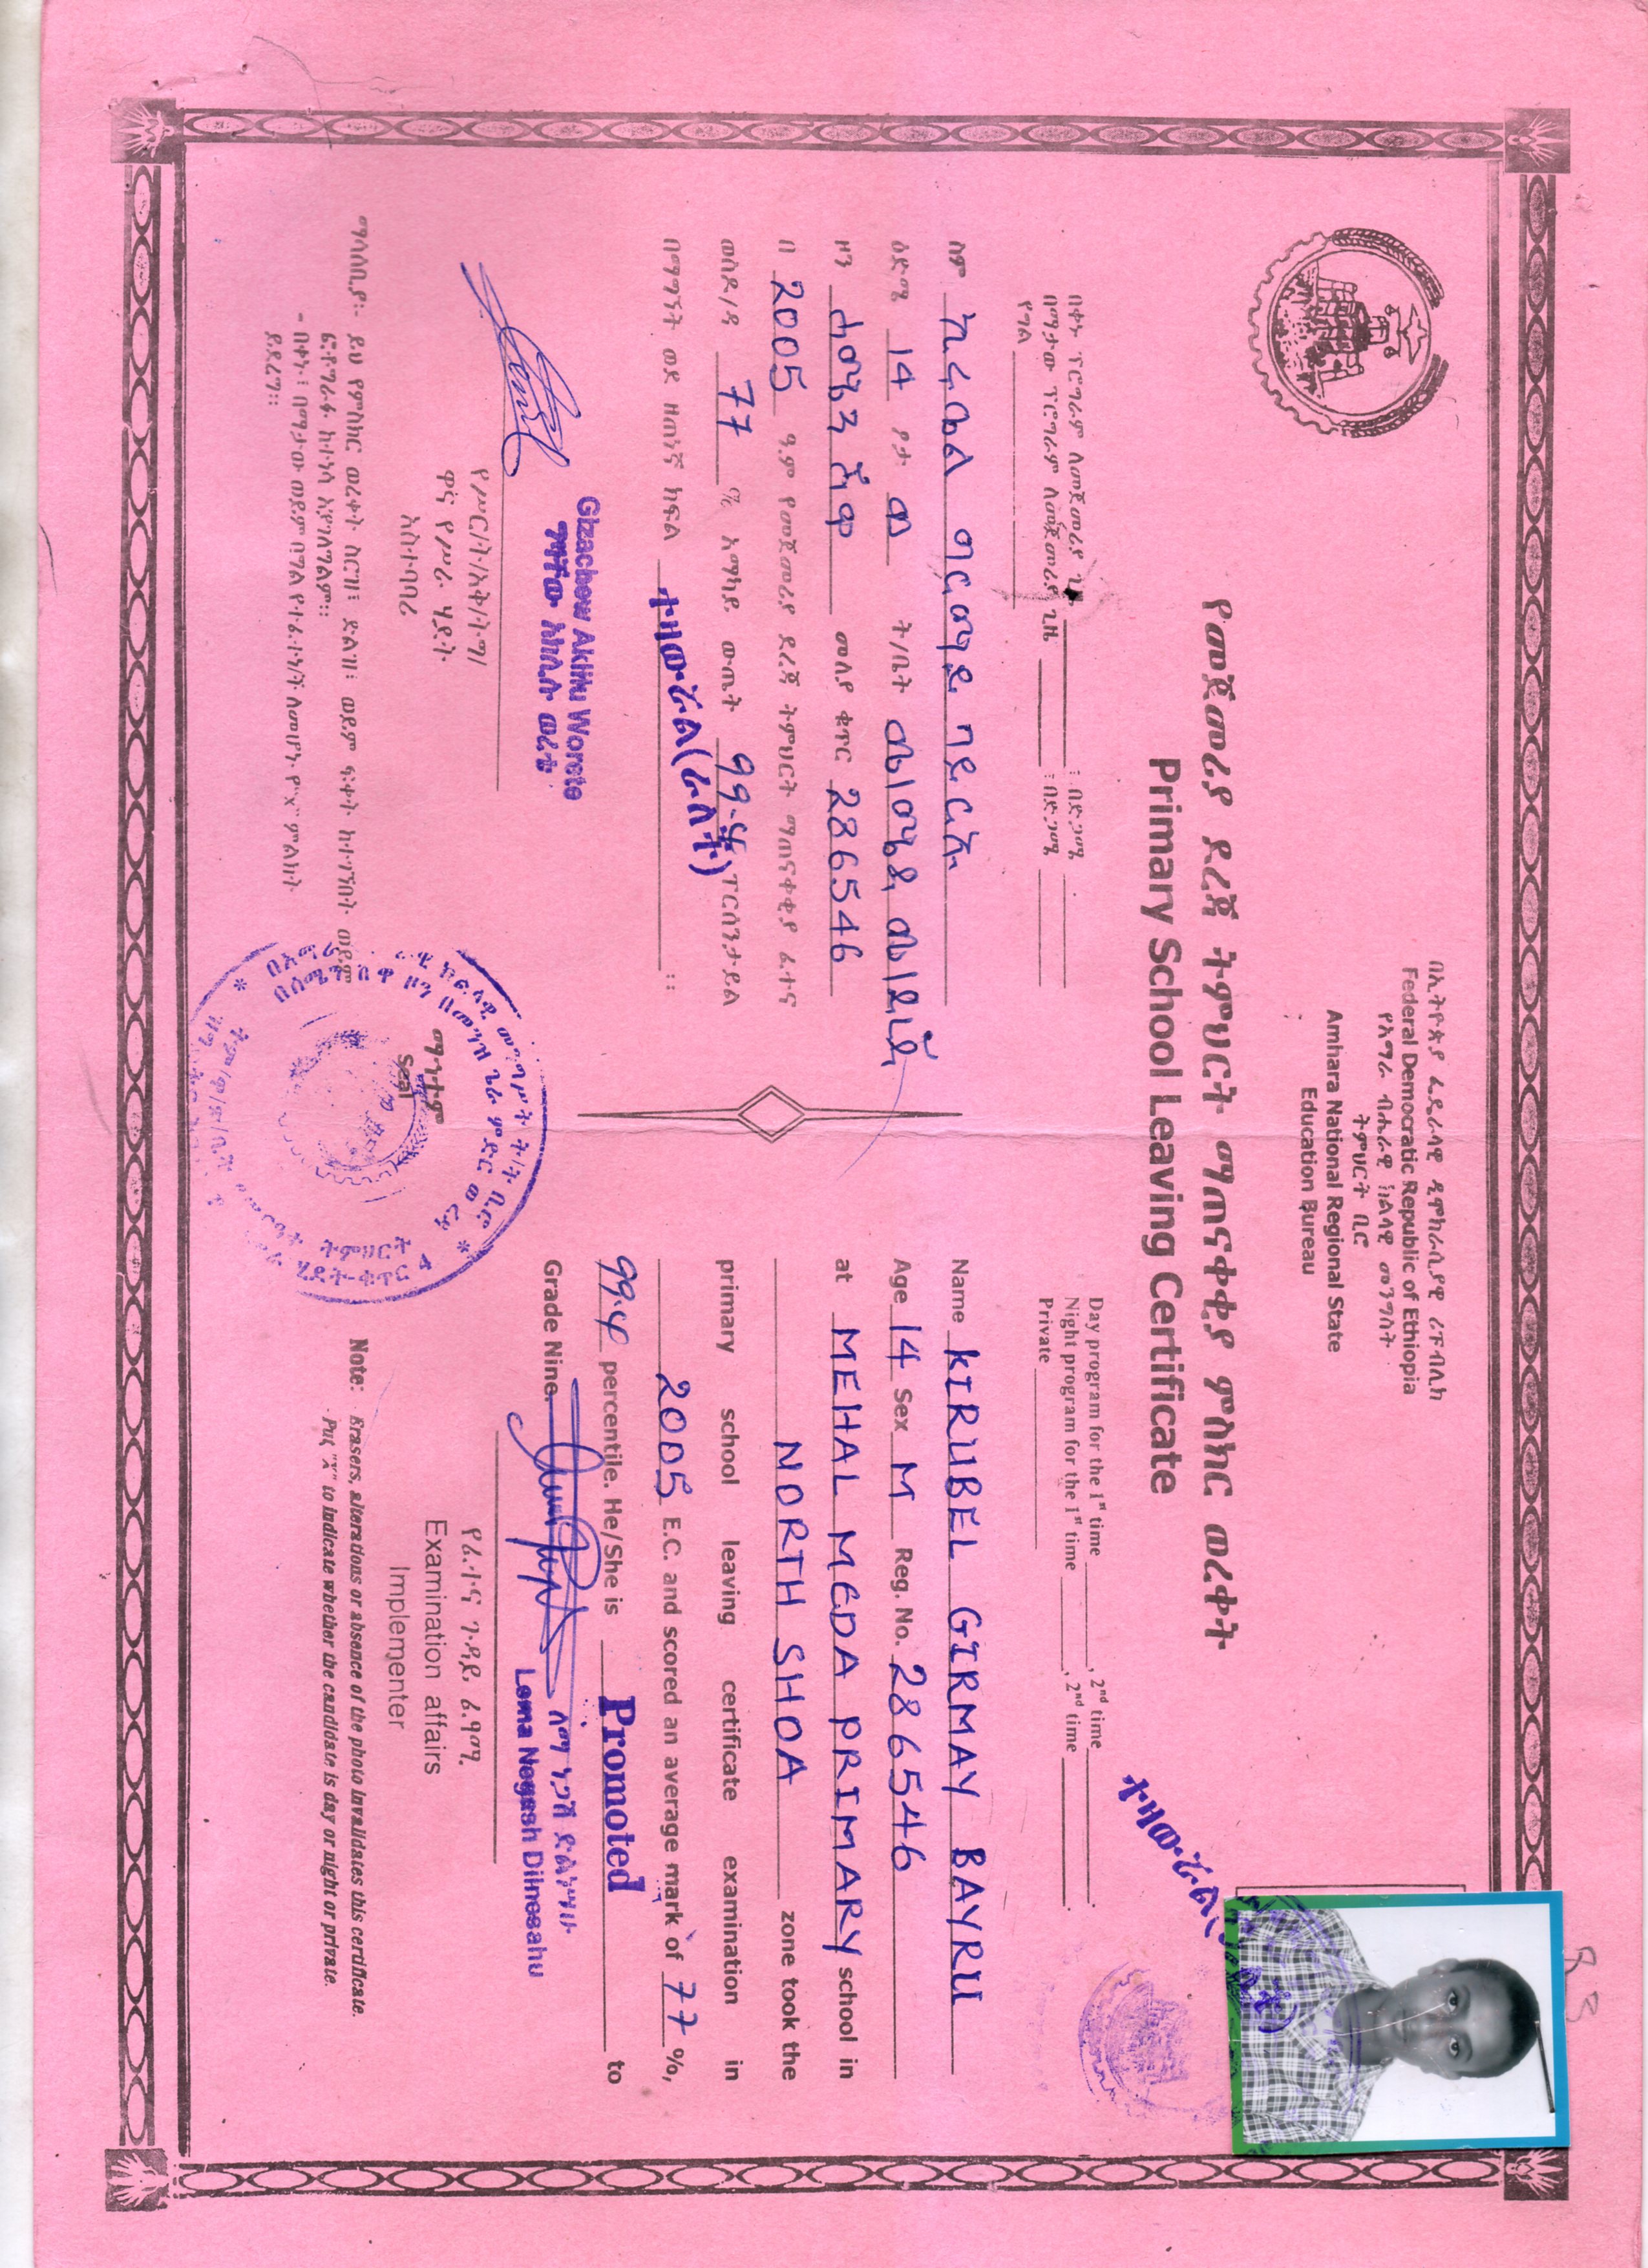 በኢትዮጵያ ፌዴራላዊ ዲሞክራሲያዊ ሪፐብሊክ
Federal Democratic Republic of Ethiopia
የአማራ ብሔራዊ ክልላዊ መንግስት
ትምህርት ቢሮ
Amhara National Regional State
Education Bureau
የመጀመሪያ ደረጃ ትምህርት ማጠናቀቂያ ምስክር ወረቀት
Primary School Leaving Certificate
ተዛውሯል
በቀኑ ፕሮግራም ለመጀመሪያ ጊዜ ፣ በድጋሜ
በማታው ፕሮግራም ለመጀመሪያ ጊዜ ፣ በድጋሜ
የግል
ስም ኪሩቤል ግርማይ ባይርኡ
ዕድሜ 14 ፆታ ወ ት/ቤት መሀል ሜዳ መ/ደረጃ
ዞን ሰሜን ሸዋ መለያ ቁጥር 286546
በ 2005 ዓ.ም የመጀመሪያ ደረጃ ትምህርት ማጠናቀቂያ ፈተና
ወስዶ/ዳ 77 % አማካይ ውጤት 99.4 ፐርሰንታይል
በማግኘት ወደ ዘጠነኛ ክፍል ተዛውሯል(ራለች) ።
Gizachew Aklilu Worete
ግዛቸው አክሊሉ ወረቴ
የሥር/ት/አቅ/ት/ግ/
ዋና የሥራ ሂደት
አስተባባሪ
ማኅተም
Seal
ማሳሰቢያ፡- ይህ የምስክር ወረቀት ስርዝ፣ ድልዝ፣ ወይም ፍቀት ከተገኘበት ወይም
ፎቶግራፉ ከተነሳ አያገለግልም።
- በቀን፣ በማታው ወይም በግል የተፈተነ/ች ለመሆኑ የ"x" ምልክት
ይደረግ።
Day program for the 1st time , 2nd time .
Night program for the 1st time , 2nd time .
Private
Name KIRUBEL GIRMAY BAYRU
Age 14 Sex M Reg. No. 286546
at MEHAL MEDA PRIMARY school in
NORTH SHOA zone took the
primary school leaving certificate examination in
2005 E.C. and scored an average mark of 77 %,
99.4 percentile. He/She is Promoted to
Grade Nine.
ለማ ነጋሽ ድልነሣሁ
Lema Negash Dilnesahu
የፈተና ጉዳይ ፈፃሚ
Examination affairs
Implementer
Note: Erasers, alterations or absence of the photo invalidates this certificate.
- Put "X" to indicate whether the candidate is day or night or private.